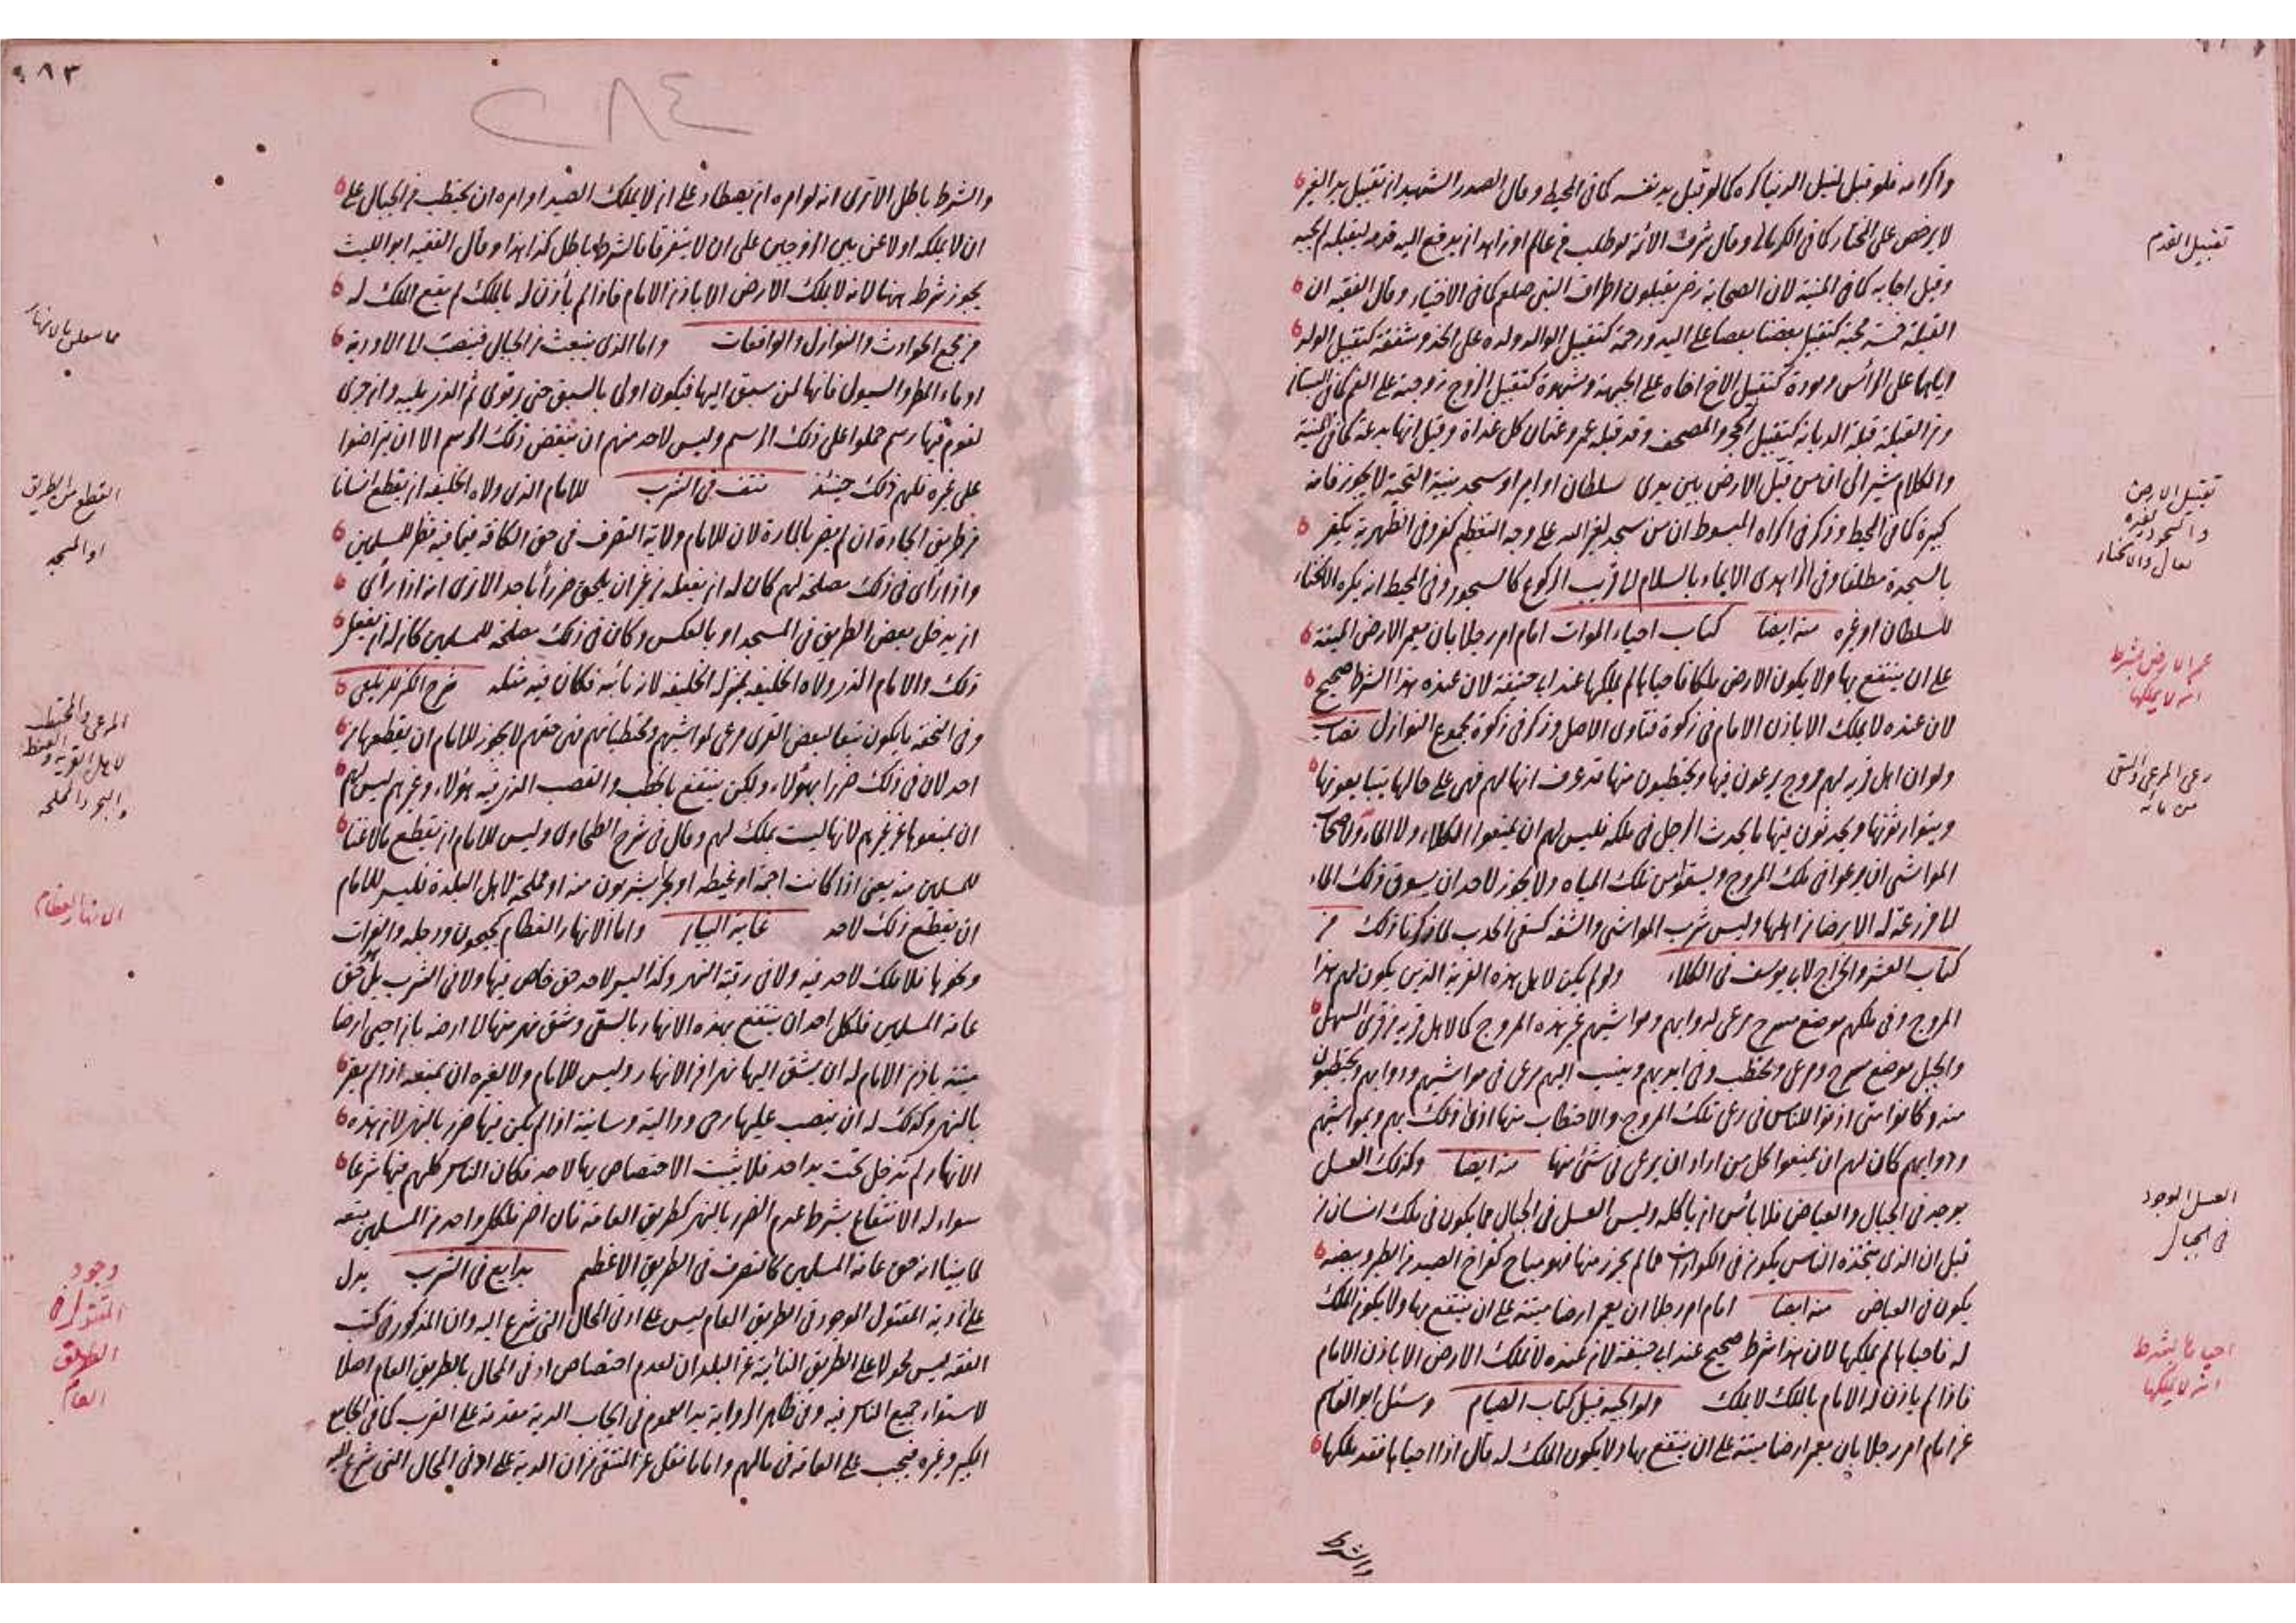 واكرامه فلو قبل لنيل الدنيا كره كما لو قبل يد نفسه كما في المحيط وقال الصدر الشهيد ان تقبيل يد الغير
لا يرخص على المختار كما في الكرماني وقال شرف الائمة لو طلب من عالم او زاهد ان يدفع اليه قدمه ليقبله لم يجبه
وقيل اجابه كما في المنية لان الصحابة رضي يقبلون اطراف النبي صلعم كما في الاختيار وقال الفقيه ان
القبلة خمسة محبة كتقبيل بعضنا بعضا على اليد ورحمة كتقبيل الوالد ولده على الخد وشفقة كتقبيل الولد
اياهما على الرأس ومودة كتقبيل الاخ اخاه على الجبهة وشهوة كتقبيل الزوج زوجته على الفم كما في
ومن القبلة قبلة الديانة كتقبيل الحجر والمصحف وقد قبله عمر وعثمان كل غداة وقيل انها بدعة كما في المنية
والكلام مشير الى ان من قبل الارض بين يدى سلطان او امير او سجد بنية التحية لا يجوز فانه
كبيرة كما في المحيط وذكر في اكراه المبسوط ان من سجد لغير الله على وجه التعظيم كفر وفي الظهيرية يكفر
بالسجدة مطلقا وفي الزاهدى الايماء بالسلام لما قرب الركوع كالسجود وفي المحيط انه يكره الانحناء
للسلطان او غيره منه ايضا كتاب احياء الموات امام امر رجلا بان يعمر الارض الميتة
على ان ينتفع بها ولا يكون الارض ملكا فاحياها لم يملكها عند ابي حنيفة لان عنده هذا الشرط صحيح
لان عنده لا يملك الا باذن الامام في زكوة فتاوى الاصل وذكر في زكوة مجموع النوازل نصاب
ولو ان اهل قرية لهم مروج يرعون فيها ويحتطبون منها قد عرف انها لهم فهي على حالها يتبايعونها
ويتوارثونها ويحدثون فيها ما يحدث الرجل في ملكه فليس لهم ان يمنعوا الكلاء ولا الماء ولاصحاب
المواشي ان يرعوا في تلك المروج ويسقوا من تلك المياه ولا يجوز لاحد ان يسوق ذلك الماء
لمزرعة له الا برضا من اهلها وليس شرب المواشي والشفه كسقي الحرث لما ذكرنا ذلك من
كتاب العشر والخراج لابي يوسف في الكلاء ولو لم يكن لاهل هذه القرية الذين يكون لهم هذا
المروج وفي ملكهم موضع مسرح ومرعى لدوابهم ومواشيهم غير هذه المروج كما لاهل قرية من قرى السهل
والجبل موضع مسرح ومرعى ومحتطب وفي ايديهم وينسب اليهم مرعى في مواشيهم ودوابهم ويحتطبون
منه وكانوا متى اذنوا للناس في رعي تلك المروج والاحتطاب منها اذى ذلك بهم وبمواشيهم
ودوابهم كان لهم ان يمنعوا كل من اراد ان يرعى في شئ منها منه ايضا وكذلك العسل
يوجد في الجبال والغياض فلا بأس ان يأكله وليس العسل في الجبال مما يكون في ملك انسان من
قبل ان الذي يتخذه الناس يكون في الكوارات فما لم يحرز منها فهو مباح كفراخ الصيد من الطير وبيضه
يكون في الغياض منه ايضا امام امر رجلا ان يعمر ارضا ميتة على ان ينتفع بها ولا يكون الملك
له فاحياها لم يملكها لان هذا شرط صحيح عند ابي حنيفة لان عنده لا تملك الارض الا باذن الامام
فاذا لم يأذن له الامام بالملك لا يملك ولوالجيه قبيل كتاب الصيام وسئل ابو القاسم
عن امام امر رجلا بان يعمر ارضا ميتة على ان ينتفع بها ولا يكون الملك له قال اذا احياها فقد يملكها
والشرط
تقبيل القدم
تقبيل الارض
والسجود لغيره
تعالى والانحناء
عمر الارض بشرط
انه لا يملكها
رعي المرعى والسقي
من مائه
العسل الموجود
في الجبال
احياها بشرط
انه لا يملكها
٢٨٣
٢٨٤
والشرط باطل الا ترى انه لو امره ان يصطاد على ان لا يملك الصيد او امره ان يحتطب من الجبال على
ان لا يملكه او لاعن بين الزوجين على ان لا يتفرقا فالشرط باطل كذا هذا وقال الفقيه ابو الليث
يجوز شرط ههنا لانه لا يملك الارض الا باذن الامام فاذا لم يأذن له بالملك لم يقع الملك له
من مجمع الحوادث والنوازل والواقعات واما الذي ينبعث من الجبال فينصب لها الاودية
او ماء المطر والسيول فانها لمن سبق اليها فيكون اولى بالسبق حتى يرتوى ثم الذي يليه وان جرى
لقوم فيها رسم حملوا على ذلك الرسم وليس لاحد منهم ان ينقض ذلك الرسم الا ان يتراضوا
على غيره فلهم ذلك حينئذ نتف في الشرب للامام الذي ولاه الخليفة ان يقطع انسانا
من طريق الجادة ان لم يضر بالمارة لان للامام ولاية التصرف في حق الكافة فيما فيه نظر للمسلمين
واذا رأى في ذلك مصلحة لهم كان له ان يفعله من غير ان يلحق ضررا باحد الا ترى انه اذا رأى
ان يدخل بعض الطريق في المسجد او بالعكس وكان في ذلك مصلحة للمسلمين كان له ان يفعل
ذلك والامام الذي ولاه الخليفة بمنزلة الخليفة لانه نائبه فكان فيه مثله شرح الكنز للزيلعي
وفي التحفة ما يكون تبعا لبعض القرى مرعى لمواشيهم ومحتطباتهم فهي حقهم لا يجوز للامام ان يقطعها من
احد لان في ذلك ضررا بهؤلاء ولكن ينتفع بالحطب والقصب الذي فيه هؤلاء وغيرهم ليس لهم
ان يمنعوها عن غيرهم لانها ليست بملك لهم وقال في شرح الطحاوى وليس للامام ان يقطع ما لا غنا
للمسلمين منه يعني اذا كانت اجمة او غيضة او بحرا يشربون منه او مملحة لاهل البلدة فليس للامام
ان يقطع ذلك لاحد غاية البيان واما الانهار العظام كجيحون ودجله والفرات
ونحوها فلا ملك لاحد فيه ولا في رقبة النهر وكذا ليس لاحد حق خاص فيها ولا في الشرب بل حق
عامة المسلمين فلكل احد ان ينتفع بهذه الانهار بالسقي وشق نهر منها الى ارضه بان احيى ارضا
ميتة باذن الامام له ان يشق اليها نهرا من الانهار وليس للامام ولا لغيره ان يمنعه اذا لم يضر
بالنهر وكذلك له ان ينصب عليها رحى ودالية وسانية اذا لم يكن فيها ضرر بالنهر لان هذه
الانهار لم تدخل تحت يد احد فلا يثبت الاختصاص بها لاحد فكان الناس كلهم فيها شرعا
سواء له الانتفاع بشرط عدم الضرر بالنهر كطريق العامة فان اضر فلكل واحد من المسلمين منعه
لما بينا انه حق عامة المسلمين كالتصرف في الطريق الاعظم بدايع في الشرب يدل
على ان دية المقتول الموجود في الطريق العام ليس على ادنى المحال التي شرع اليه وان المذكور في كتب
الفقه ليس محمولا على الطريق النائية عن البلدان لعدم اختصاص ادنى المحال بالطريق العام اصلا
لاستواء جميع الناس فيه وفي ظاهر الرواية يد العموم في ايجاب الدية مقدمة على القرب كما في الجامع
الكبير وغيره فيجب على العامة في مالهم واما ما نقل عن المنتقى من ان الدية على ادنى المحال التي شرع اليه
ما يتعلق بالانهار
القطع من الطريق
او المسجد
المرعى والمحتطب
لاهل القرية
والبحر والمملحة
الانهار العظام
وجود
المقتول في
الطريق
العام